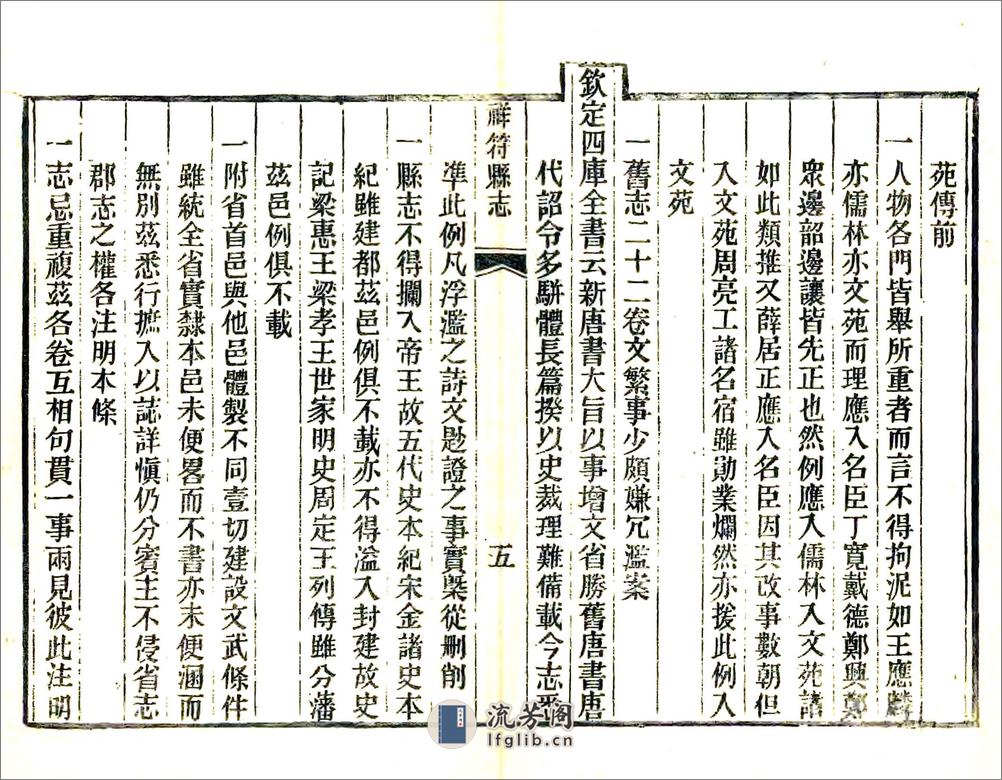 苑傳前
一人物各門皆舉所重者而言不得拘泥如王應麟
亦儒林亦文苑而理應入名臣丁寬戴德鄭興鄭
眾邊韶邊讓皆先正也然例應入儒林入文苑諸
如此類推又薛居正應入名臣因其改事數朝但
入文苑周亮工諸名宿雖勛業爛然亦援此例入
文苑
一舊志二十二卷文繁事少頗嫌冗濫案
欽定四庫全書云新唐書大旨以事增文省勝舊唐書唐
代詔令多駢體長篇揆以史裁理難備載今志
祥符縣志
五
準此例凡浮濫之詩文尟證之事實槩從刪削
一縣志不得攔入帝王故五代史本紀宋金諸史本
紀雖建都茲邑例俱不載亦不得溢入封建故史
記梁惠王梁孝王世家明史周定王列傳雖分藩
茲邑例俱不載
一附省首邑與他邑體製不同壹切建設文武條件
雖統全省實隸本邑未便畧而不書亦未便涵而
無別茲悉行摭入以誌詳愼仍分賓主不侵省志
郡志之權各注明本條
一志忌重複茲各卷互相句貫一事兩見彼此注明
流芳閣
lfglib.cn